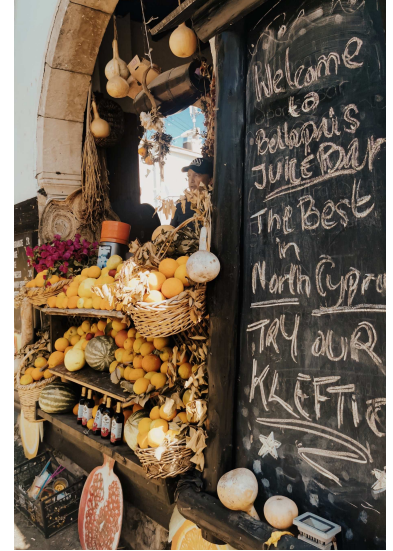 Welcome
to
Bellapais
JUICE BAR
The Best
in
North Cypru
TRY OUR
KLEFTI